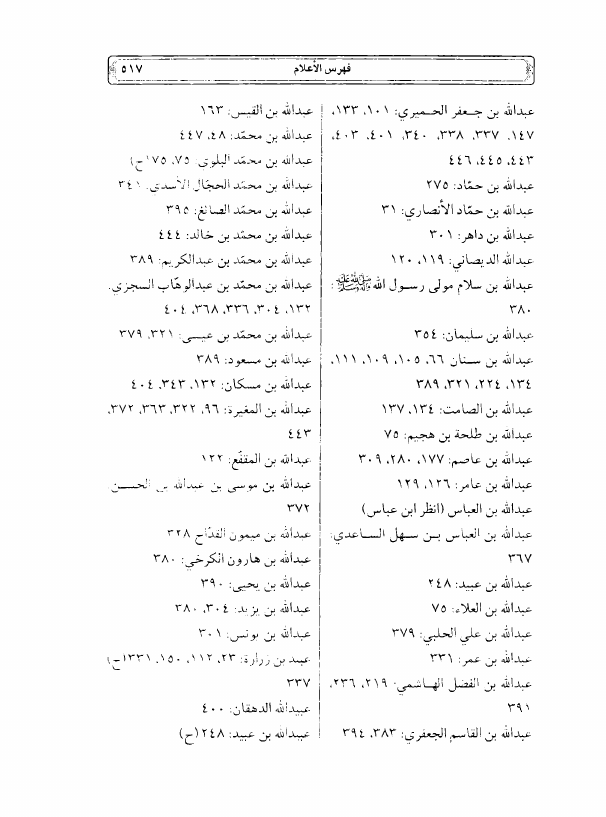 فهرس الأعلام
٥١٧
عبدالله بن جعفر الحميري: ١٠١، ١٣٣،
١٤٧، ٣٣٧، ٣٣٨، ٣٤٠، ٤٠١، ٤٠٣،
٤٤٣، ٤٤٥، ٤٤٦
عبدالله بن حمّاد: ٢٧٥
عبدالله بن حمّاد الأنصاري: ٣١
عبدالله بن داهر: ٣٠١
عبدالله الديصاني: ١١٩، ١٢٠
عبدالله بن سلام مولى رسول الله ﷺ:
٣٨٠
عبدالله بن سليمان: ٣٥٤
عبدالله بن سنان ٦٦، ١٠٥، ١٠٩، ١١١،
١٣٤، ٢٢٤، ٣٢١، ٣٨٩
عبدالله بن الصامت: ١٣٤، ١٣٧
عبدالله بن طلحة بن هجيم: ٧٥
عبدالله بن عاصم: ١٧٧، ٢٨٠، ٣٠٩
عبدالله بن عامر: ١٢٦، ١٢٩
عبدالله بن العباس (انظر ابن عباس)
عبدالله بن العباس بن سهل الساعدي:
٣٦٧
عبدالله بن عبيد: ٢٤٨
عبدالله بن العلاء: ٧٥
عبدالله بن علي الحلبي: ٣٧٩
عبدالله بن عمر: ٣٣١
عبدالله بن الفضل الهاشمي: ٢١٩، ٢٣٦،
٣٩١
عبدالله بن القاسم الجعفري: ٣٨٣، ٣٩٤
عبدالله بن القيس: ١٦٣
عبدالله بن محمّد: ٤٨، ٤٤٧
عبدالله بن محمّد البلوي: ٧٥، ١٧٥(ح)
عبدالله بن محمّد الحجّال الأسدي: ٣٤١
عبدالله بن محمّد الصائغ: ٣٩٥
عبدالله بن محمّد بن خالد: ٤٤٤
عبدالله بن محمّد بن عبدالكريم: ٣٨٩
عبدالله بن محمّد بن عبدالوهّاب السجزي:
١٣٢، ٣٠٤، ٣٣٦، ٣٦٨، ٤٠٤
عبدالله بن محمّد بن عيسى: ٣٢١، ٣٧٩
عبدالله بن مسعود: ٣٨٩
عبدالله بن مسكان: ١٣٢، ٣٤٣، ٤٠٤
عبدالله بن المغيرة: ٩٦، ٣٢٢، ٣٦٣، ٣٧٢،
٤٤٣
عبدالله بن المقفّع: ١٢٢
عبدالله بن موسى بن عبدالله بن الحسن
٣٧٢
عبدالله بن ميمون القدّاح ٣٢٨
عبدالله بن هارون الكرخي: ٣٨٠
عبدالله بن يحيى: ٣٩٠
عبدالله بن يزيد: ٣٠٤، ٣٨٠
عبدالله بن يونس: ٣٠١
عبيد بن زرارة: ٢٣، ١١٢، ١٥٠، ٣٣١(ح)
٣٣٧
عبيدالله الدهقان: ٤٠٠
عبيدالله بن عبيد: ٢٤٨(ح)